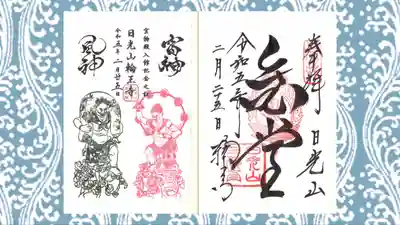 奉拝 日光山
令和五年
二月二十五日
輪王寺
雷神
宝物殿入館記念之証
日光山輪王寺
令和五年二月廿五日
風神